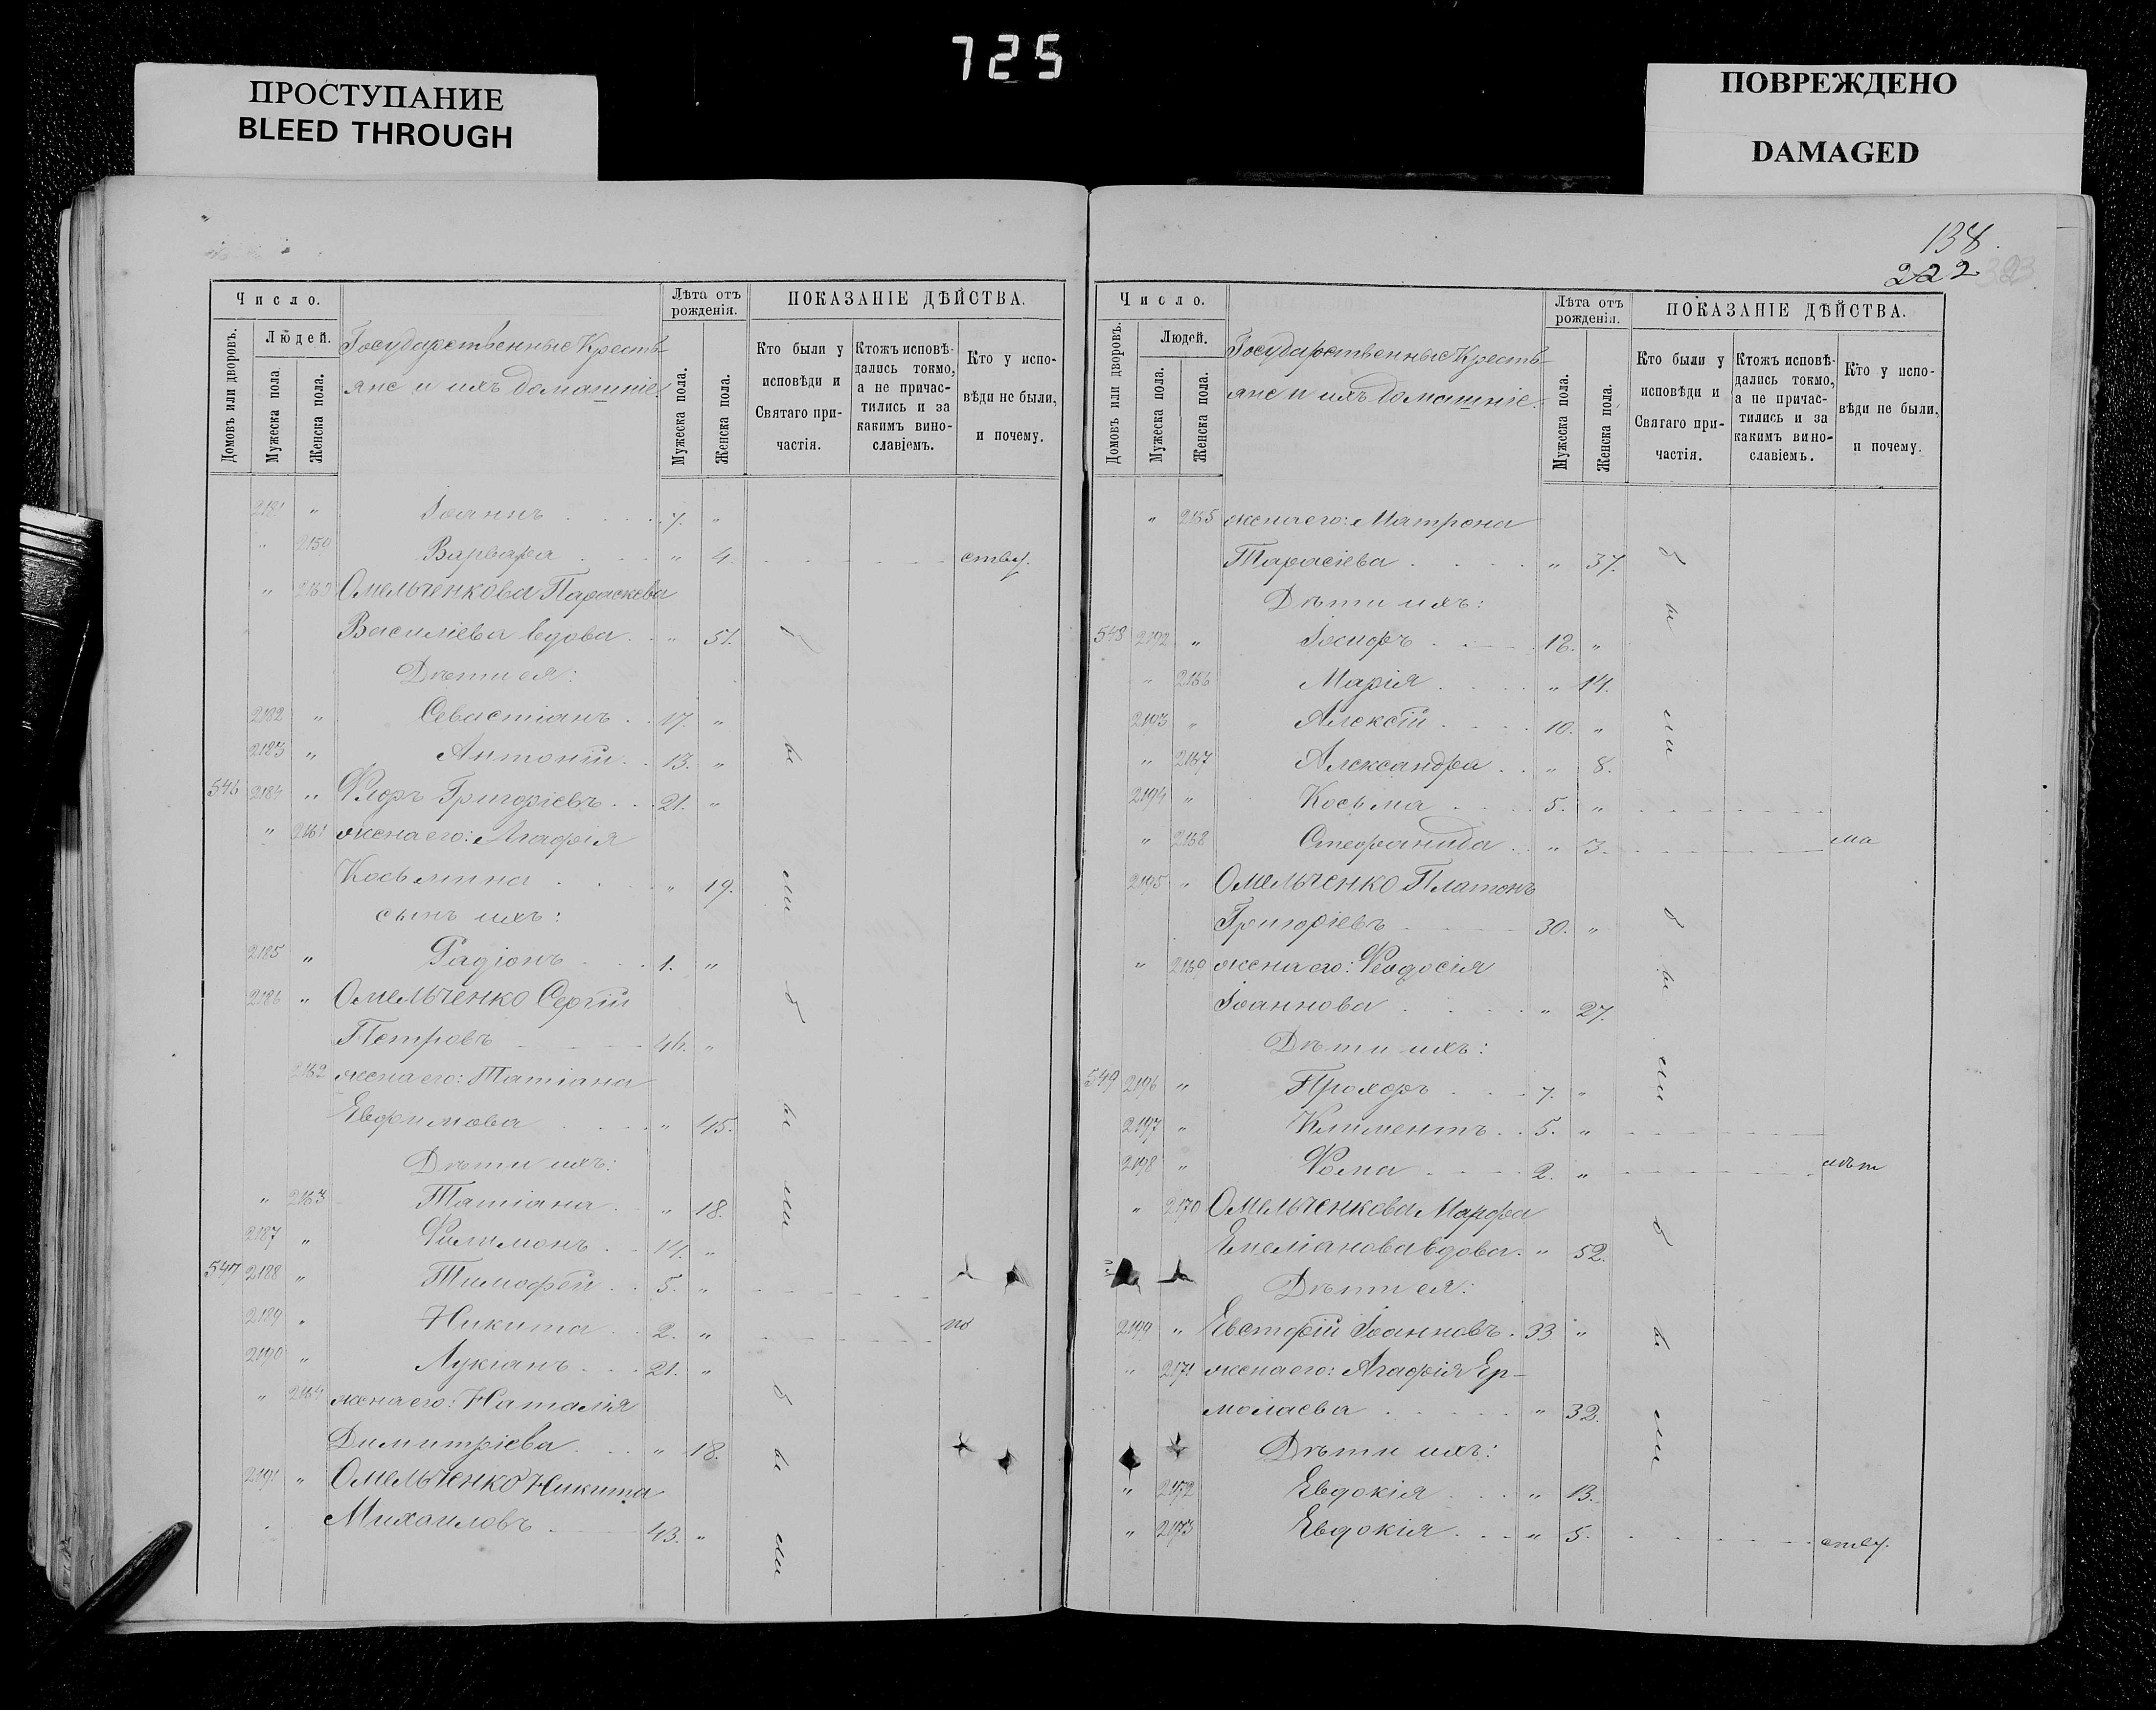 725
ПРОСТУПАНИЕ
BLEED THROUGH
ПОВРЕЖДЕНО
DAMAGED
Число.
Людей.
Домовъ или дворовъ.
Мужеска пола.
Женска пола.
Государственные Кресть-
яне и ихъ домашніе.
Лѣта отъ
рожденія.
Мужеска пола.
Женска пола.
ПОКАЗАНІЕ ДѢЙСТВА.
Кто были у
исповѣди и
Святаго при-
частія.
Ктожъ исповѣ-
дались токмо,
а не причас-
тились и за
какимъ вино-
славіемъ.
Кто у испо-
вѣди не были,
и почему.
2181 " Іоаннъ 7. "
" 2159 Варвара " 4. ству.
" 2160 Омельченкова Параскева
Василіева вдова " 51.
Дѣти ея:
2182 " Севастіанъ 17. "
2183 " Антоній 13. "
546 2184 " Флоръ Григоріевъ 21. "
" 2161 жена его: Агафія
Косьмина " 19.
сынъ ихъ:
2185 " Радіонъ 1. "
2186 " Омельченко Сергій
Петровъ 44. "
2162 жена его: Татіана
Евфимова " 45.
Дѣти ихъ:
" 2163 Татіана " 18.
2187 " Филимонъ 14. "
547 2188 " Тимофей 5. "
2189 " Никита 2. " по
2190 " Лукіанъ 21. "
" 2164 жена его: Наталія
Димитріева " 18.
2191 " Омельченко Никита
Михаиловъ 43. "
бы ли бы ли бы ли
138.
222
Число.
Людей.
Домовъ или дворовъ.
Мужеска пола.
Женска пола.
Государственные Кресть-
яне и ихъ домашніе.
Лѣта отъ
рожденія.
Мужеска пола.
Женска пола.
ПОКАЗАНІЕ ДѢЙСТВА.
Кто были у
исповѣди и
Святаго при-
частія.
Ктожъ исповѣ-
дались токмо,
а не причас-
тились и за
какимъ вино-
славіемъ.
Кто у испо-
вѣди не были,
и почему.
" 2165 жена его: Матрона
Тарасіева " 37.
Дѣти ихъ:
548 2192 " Іосифъ 18. "
" 2166 Марія " 14.
2193 " Алексій 10. "
" 2167 Александра " 8.
2194 " Косьма 5. "
" 2168 Стефанида " 3. ма
2195 " Омельченко Платонъ
Григоріевъ 30. "
" 2169 жена его: Феодосія
Іоаннова " 27.
Дѣти ихъ:
549 2196 " Прохоръ 7. "
2197 " Климентъ 5. "
2198 " Фома 2. " лѣт
" 2170 Омельченкова Марфа
Емеліанова вдова " 52.
Дѣти ея:
2199 " Евстафій Іоанновъ 33 "
" 2171 жена его: Агафія Ер-
молаева " 32.
Дѣти ихъ:
" 2172 Евдокія " 13.
" 2173 Евдокія " 5. ству.
бы ли бы ли бы ли